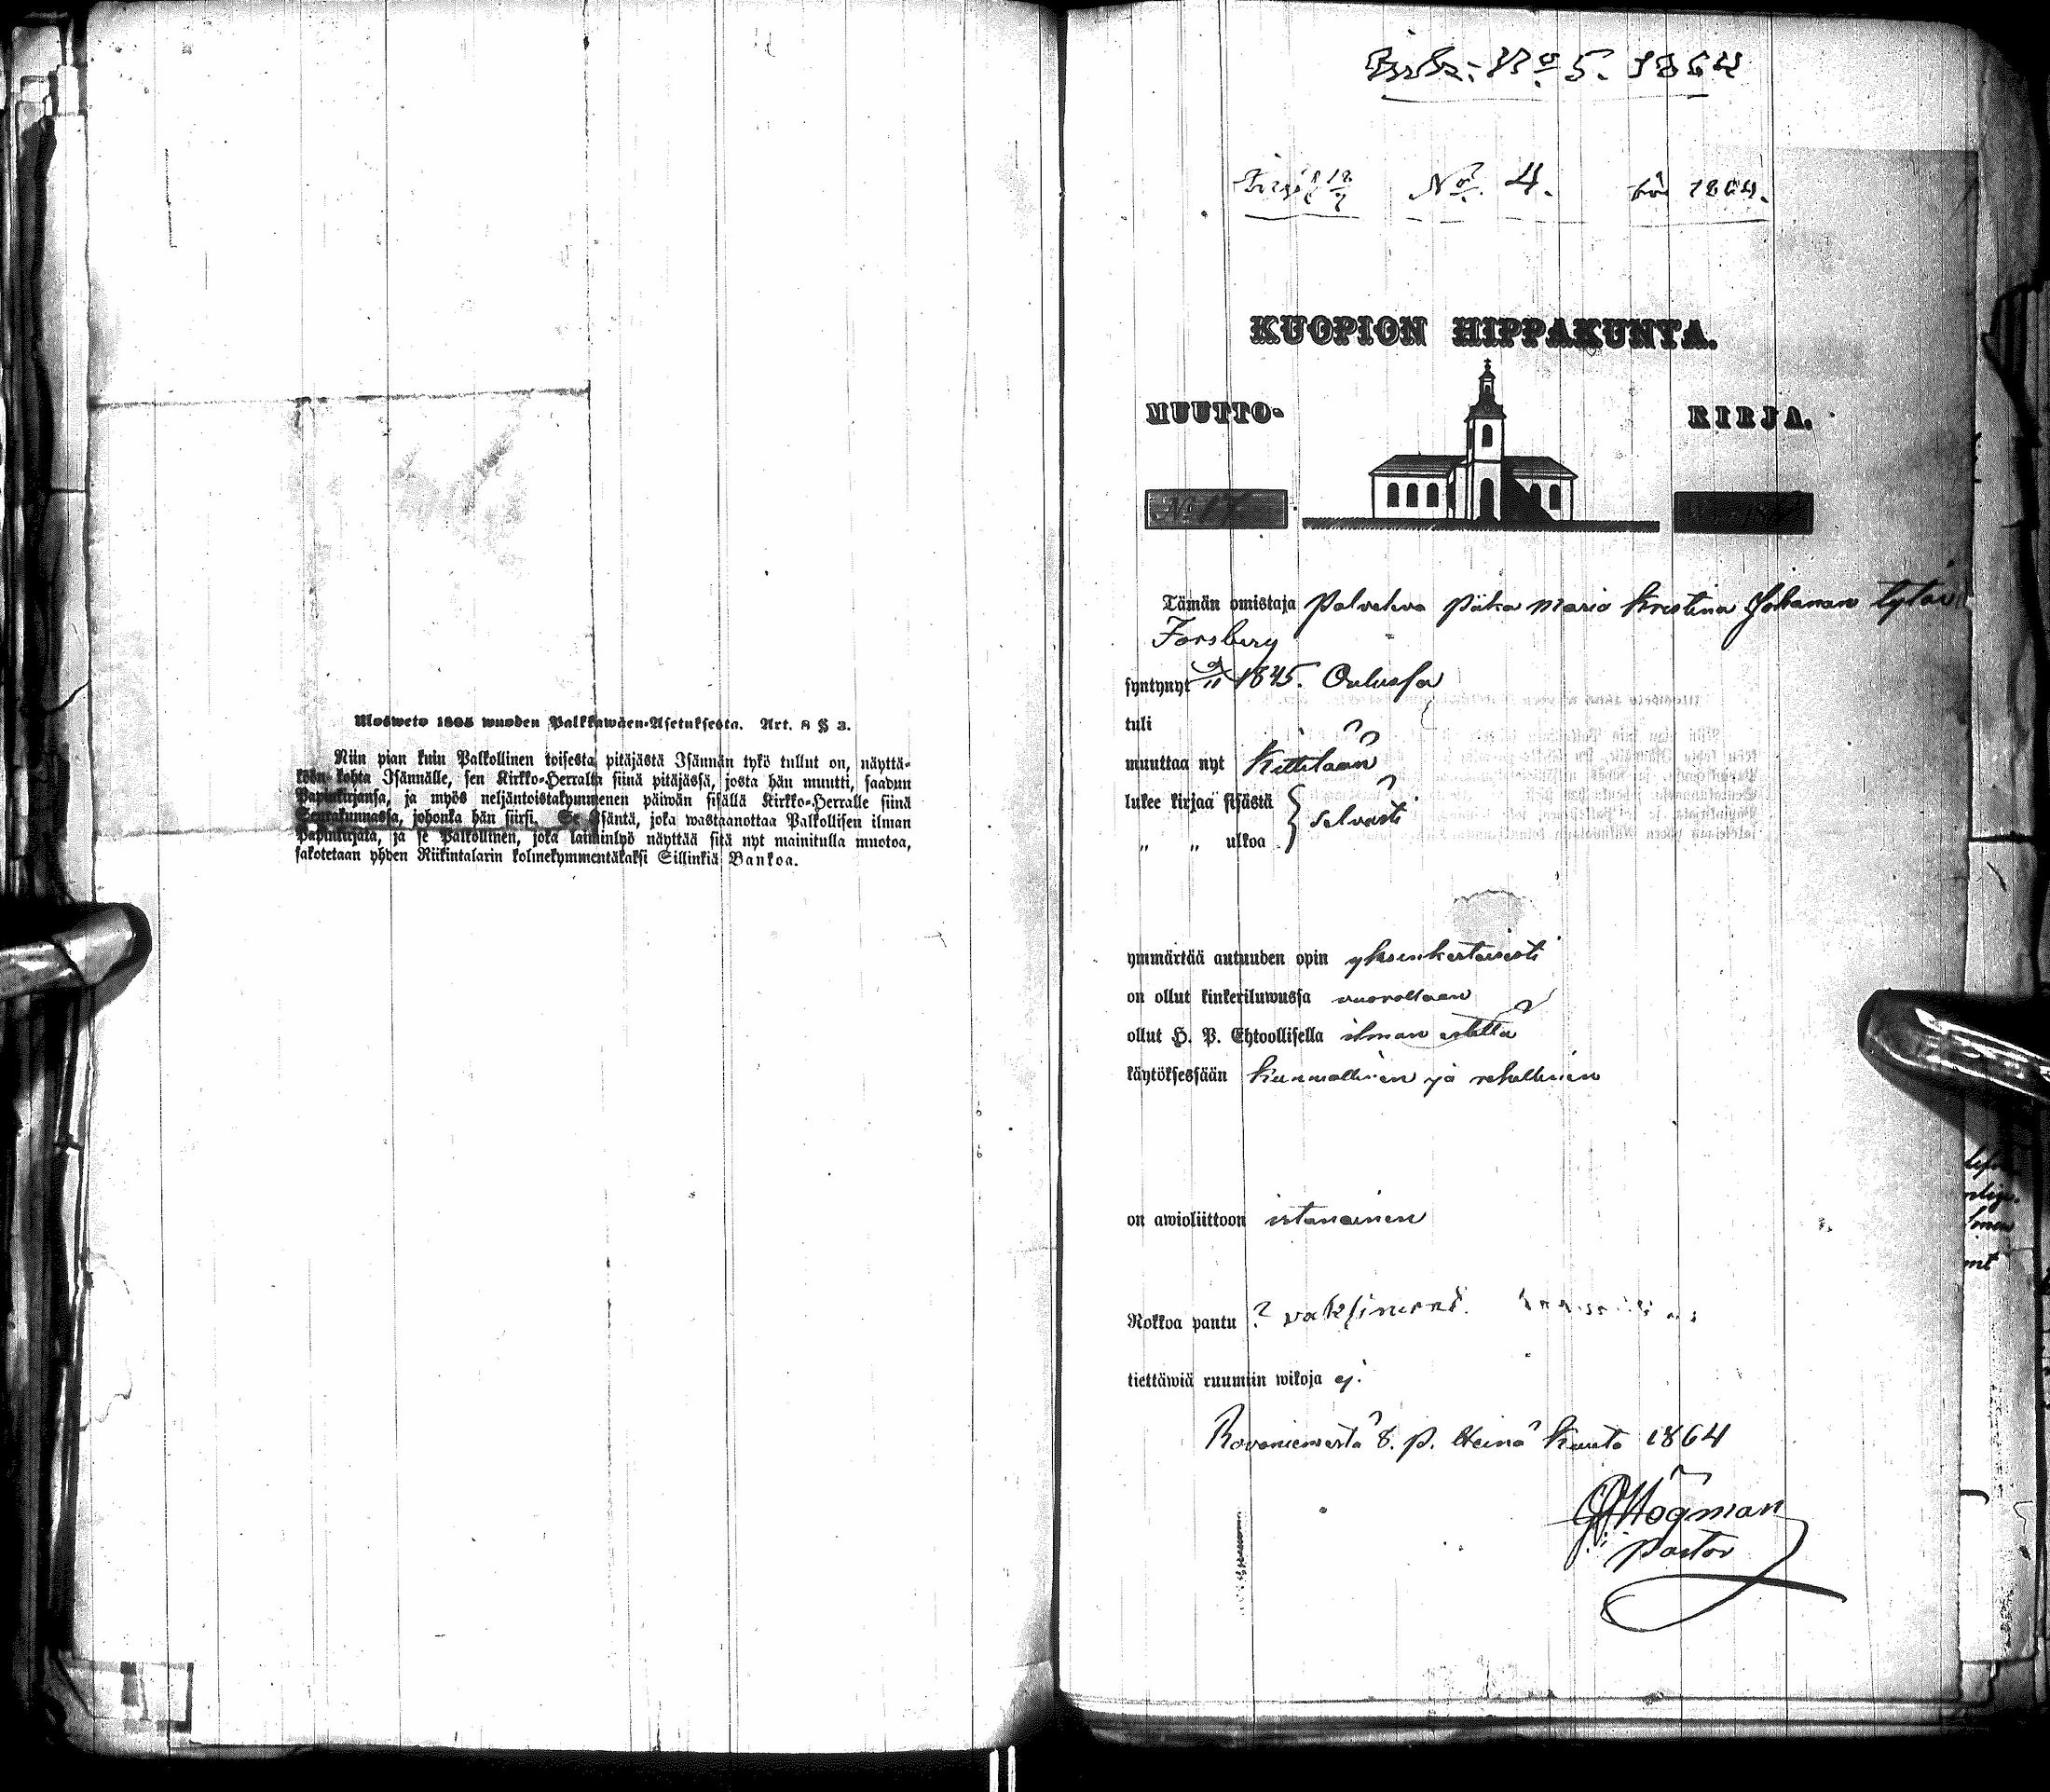 Uloswето 1805 wuoden Palkkawäen-Asetuksesta. Art. 8 § 3.
Niin pian kuin Palkollinen toisesta pitäjästä Isännän tykö tullut on, näyttä-
köön kohta Isännälle, sen Kirkko-Herralta siinä pitäjässä, josta hän muutti, saadun
Papinkirjansa, ja myös neljäntoistakymmenen päiwän sisällä Kirkko-Herralle siinä
Seurakunnassa, johonka hän siirsi. Se Isäntä, joka wastaanottaa Palkollisen ilman
Papinkirjata, ja se Palkollinen, joka laiminlyö näyttää sitä nyt mainitulla muotoa,
sakotetaan yhden Riikintalarin kolmekymmentäkaksi Sillinkiä Bankoa.
No 5. 1864
No. 4. 1864.
KUOPION HIPPAKUNTA.
MUUTTO- KIRJA.
No 17
Tämän omistaja palveleva piika Maria Kristina Johanan tytär
Forsberg
syntynyt 1845. Oulussa
tuli
muuttaa nyt Kittilään
lukee kirjaa sisästä } selvästi
„ „ ulkoa
ymmärtää autuuden opin yksinkertaisesti
on ollut kinkeriluwussa vuorollaan
ollut H. P. Ehtoollisella ilman estettä
käytöksessään kunniallinen ja rehellinen
on awioliittoon estanainen
Rokkoa pantu ? vaksinerat.
tiettäwiä ruumiin wikoja ej.
Rovaniemestä 8. p. Heinä Kuuta 1864
Högman
pastor